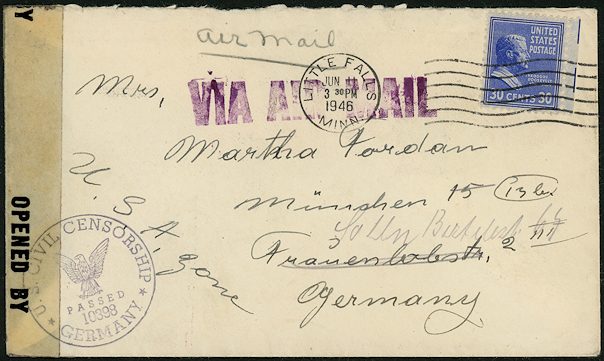 Air Mail
VIA AIR MAIL
LITTLE FALLS
JUN 11
3 30 PM
1946
MINN.
UNITED
STATES
POSTAGE
30 CENTS 30
Mrs,
Martha Jordan
München 15
Frauenlobstr, 2 III
Germany.
U. S. A. zone
OPENED BY
U.S. CIVIL CENSORSHIP
PASSED
10398
GERMANY